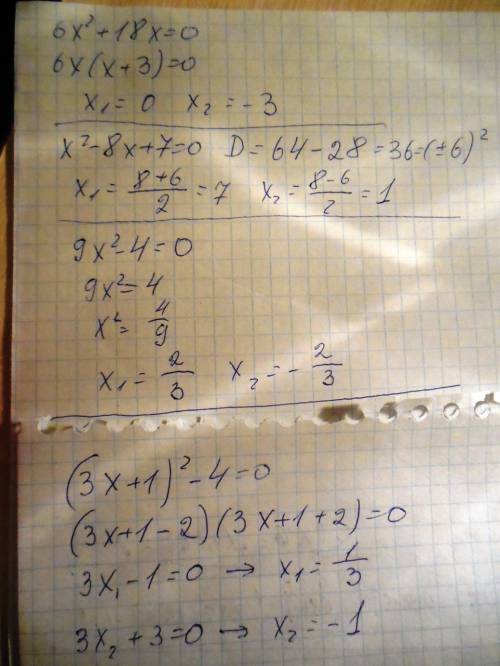 6x²+18x=0
6x(x+3)=0
x₁=0 x₂=-3
x²-8x+7=0 D=64-28=36=(±6)²
x₁=\frac{8+6}{2}=7 x₂=\frac{8-6}{2}=1
9x²-4=0
9x²=4
x²=\frac{4}{9}
x₁=\frac{2}{3} x₂=-\frac{2}{3}
(3x+1)²-4=0
(3x+1-2)(3x+1+2)=0
3x₁-1=0 → x₁=\frac{1}{3}
3x₂+3=0 → x₂=-1